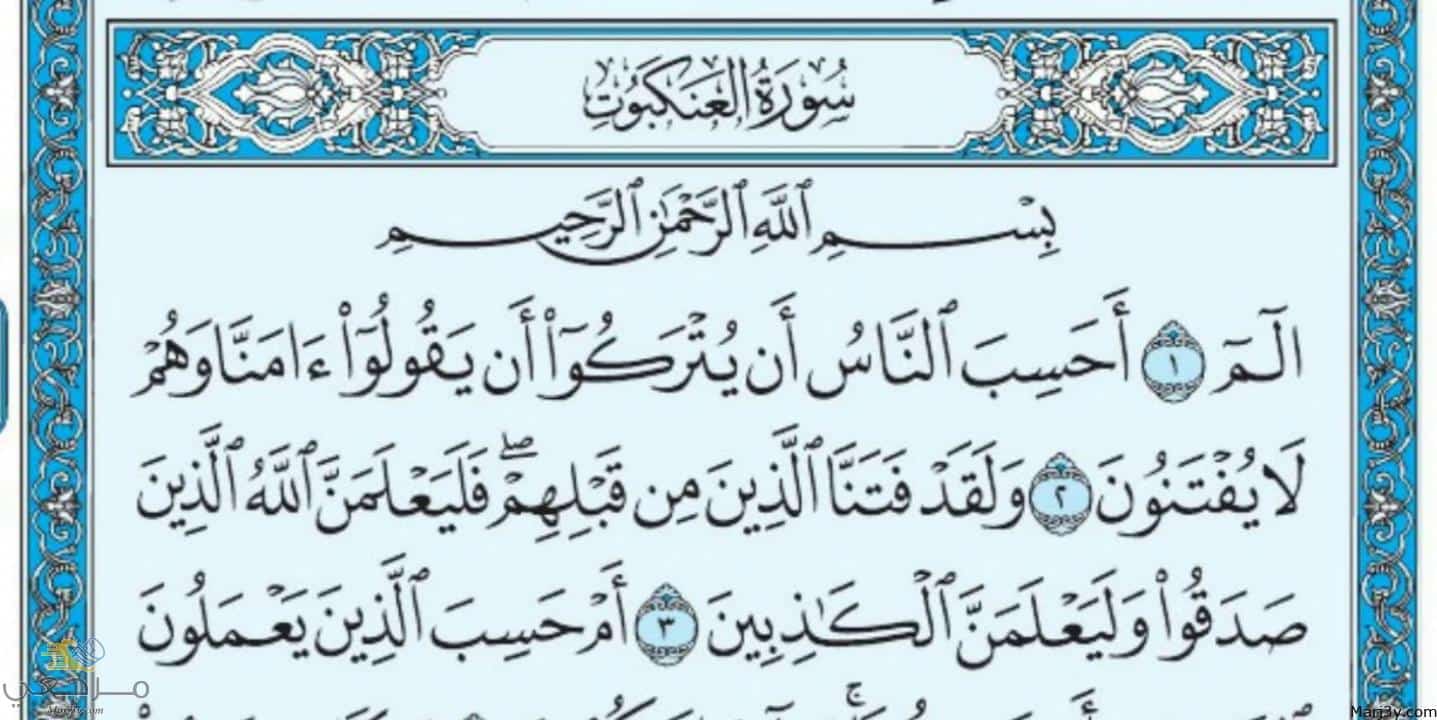 سُورَةُ العَنكَبُوتِ
بِسْمِ ٱللَّهِ ٱلرَّحْمَٰنِ ٱلرَّحِيمِ
الٓمٓ ١ أَحَسِبَ ٱلنَّاسُ أَن يُتْرَكُوٓا۟ أَن يَقُولُوٓا۟ ءَامَنَّا وَهُمْ
لَا يُفْتَنُونَ ٢ وَلَقَدْ فَتَنَّا ٱلَّذِينَ مِن قَبْلِهِمْ ۖ فَلَيَعْلَمَنَّ ٱللَّهُ ٱلَّذِينَ
صَدَقُوا۟ وَلَيَعْلَمَنَّ ٱلْكَٰذِبِينَ ٣ أَمْ حَسِبَ ٱلَّذِينَ يَعْمَلُونَ
مراجعي
Marj3y.com
Marj3y.com